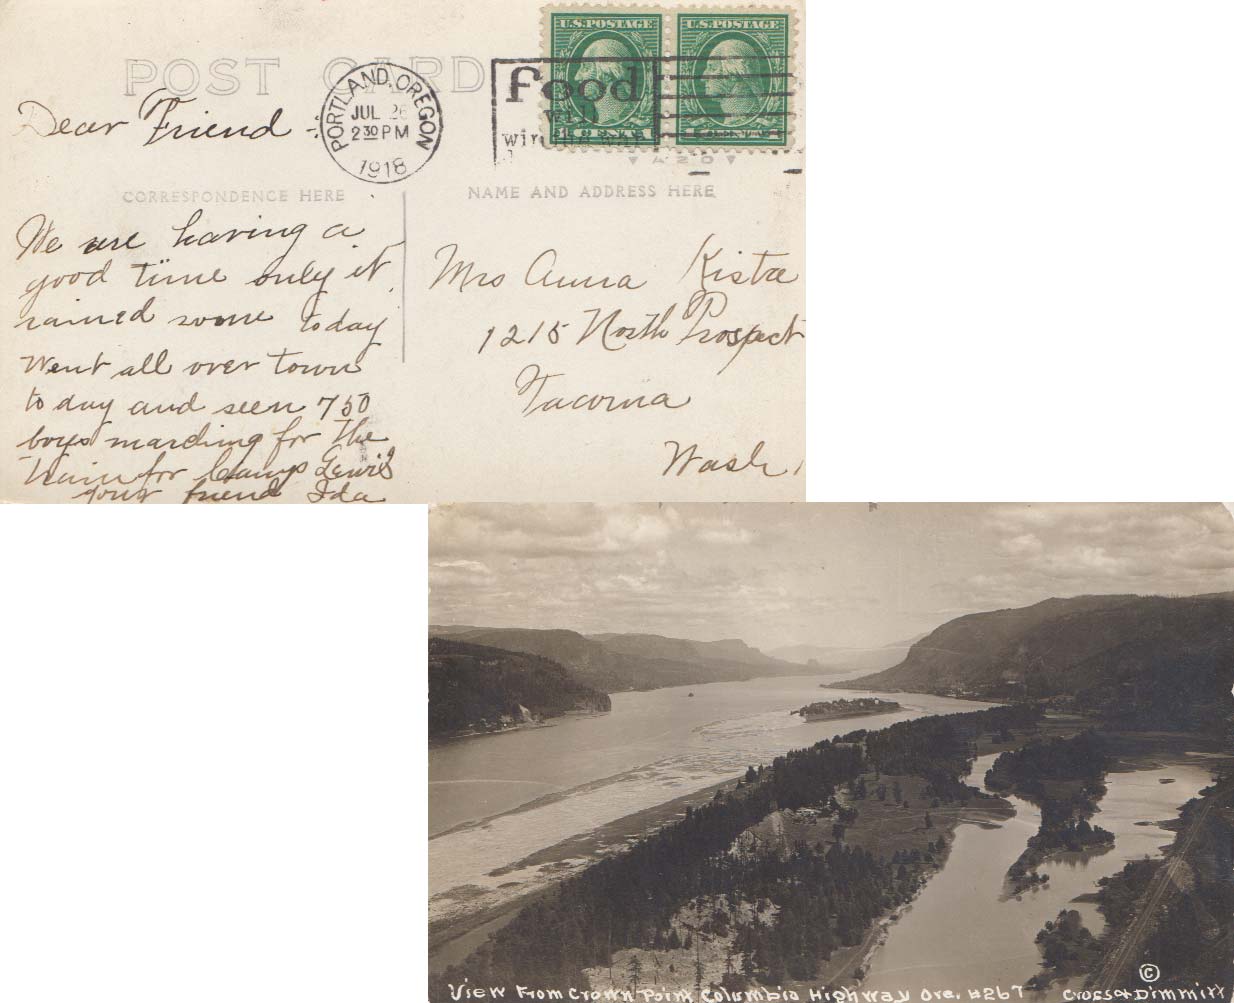 POST CARD
U.S.POSTAGE U.S.POSTAGE
PORTLAND, OREGON
JUL 26
2 30 PM
1918
Food
will
win the war
1 CENT 1
AZO
Dear Friend -
CORRESPONDENCE HERE
NAME AND ADDRESS HERE
We are having a
good time only it
rained some today
Went all over town
to day and seen 750
boys marching for the
train for Camp Lewis
your friend Ida
Mrs Anna
1215 North Prospect
Tacoma
Wash
View From Crown Point Columbia Highway Ore. #267
© Cross & Dimmitt